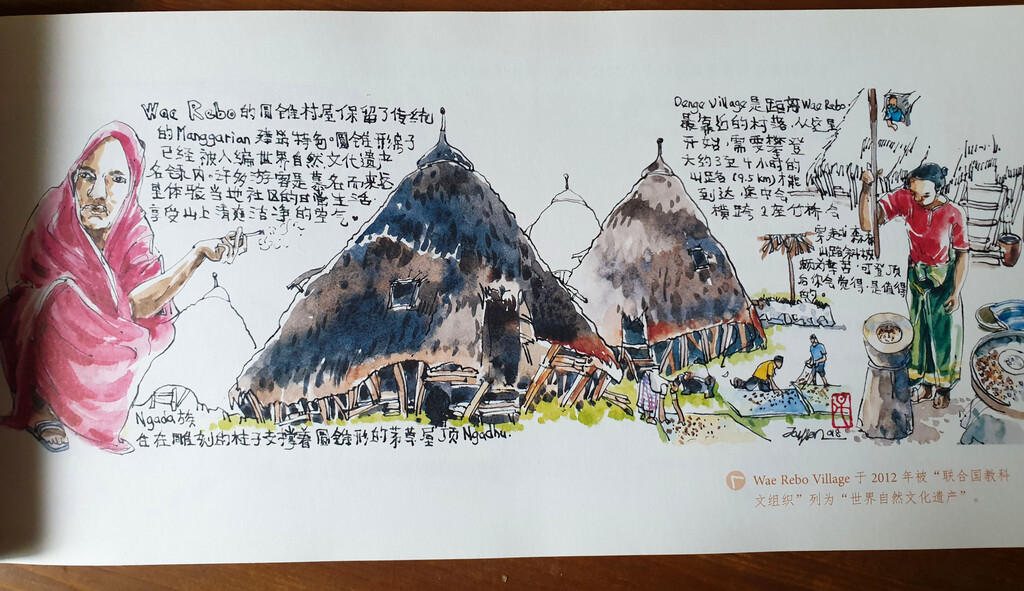 Wae Rebo的圆锥村屋保留了传统
的Manggarian建筑特色。圆锥形房子
已经被入编世界自然文化遗产
名录内,许多游客是慕名而来
里体验当地社区的日常生活,
享受山上清凉洁净的空气。
Denge Village是距离Wae Rebo.
最靠近的村落,从这里
开始,需要攀登
大约3至4小时的
山路(9.5km)才能
到达,途中会
横跨2座竹桥
穿越森林
山路斜坡
颇为辛苦,可登顶
后你会觉得,是值得
的。
Ngada族
住在雕刻的柱子支撑着圆锥形的茅草屋顶Ngadhu.
Wae Rebo Village 于 2012 年被“联合国教科
文组织”列为“世界自然文化遗产”。